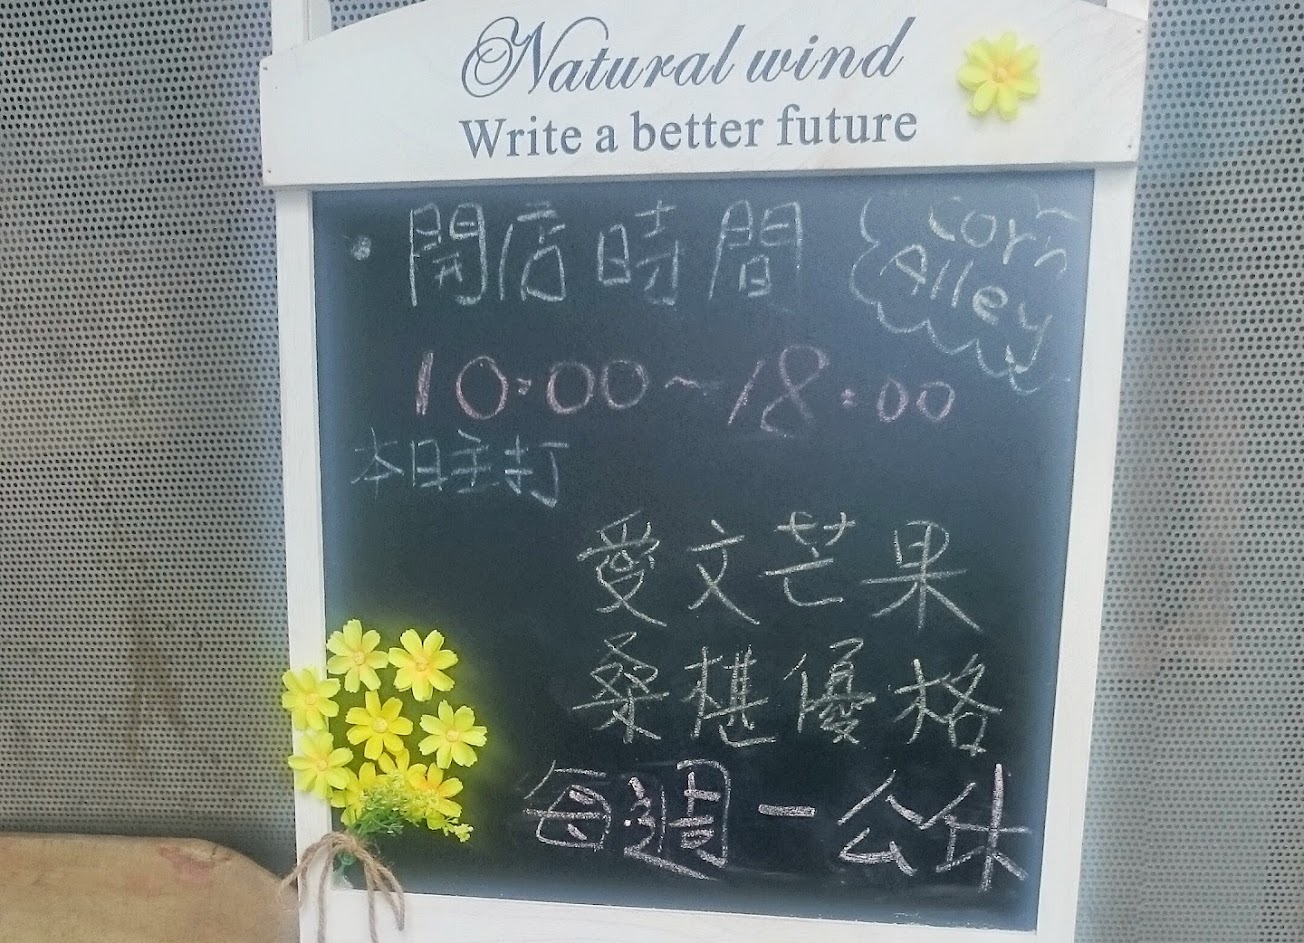 Natural wind
Write a better future
•開店時間
Corn
Alley
10:00~18:00
本日主打
愛文芒果
桑椹優格
每週一公休